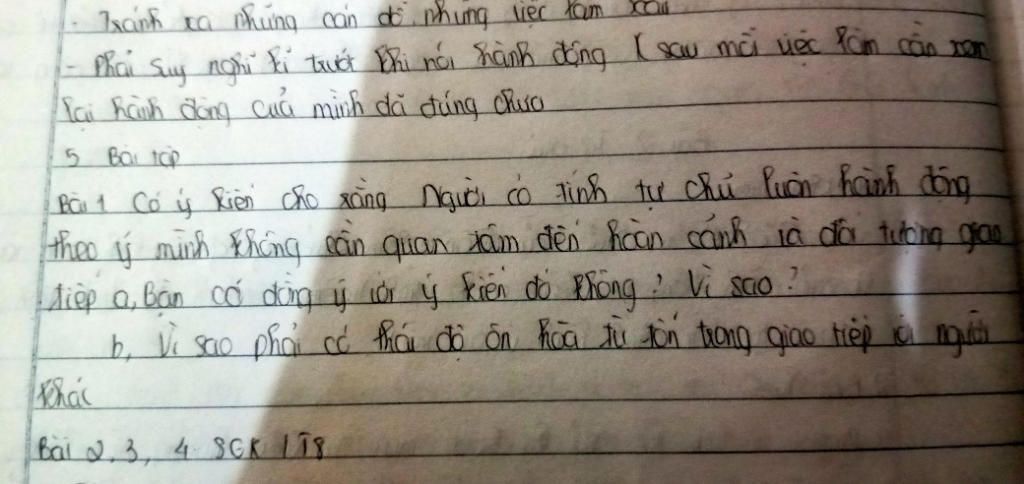 - Tránh xa những cán dỗ những việc làm xấu
- Phải suy nghĩ kĩ trước khi nói hành động ( sau mỗi việc làm cần xem
lại hành động của mình đã đúng chưa
5 Bài tập
Bài 1 Có ý kiến cho rằng Người có tính tự chủ luôn hành động
theo ý mình không cần quan tâm đến hoàn cảnh và đối tượng giao
tiếp a, Bạn có đồng ý với ý kiến đó không? Vì sao?
b, Vì sao phải có thái độ ôn hòa từ tốn trong giao tiếp với người
khác
Bài 2, 3, 4 SGK / T8